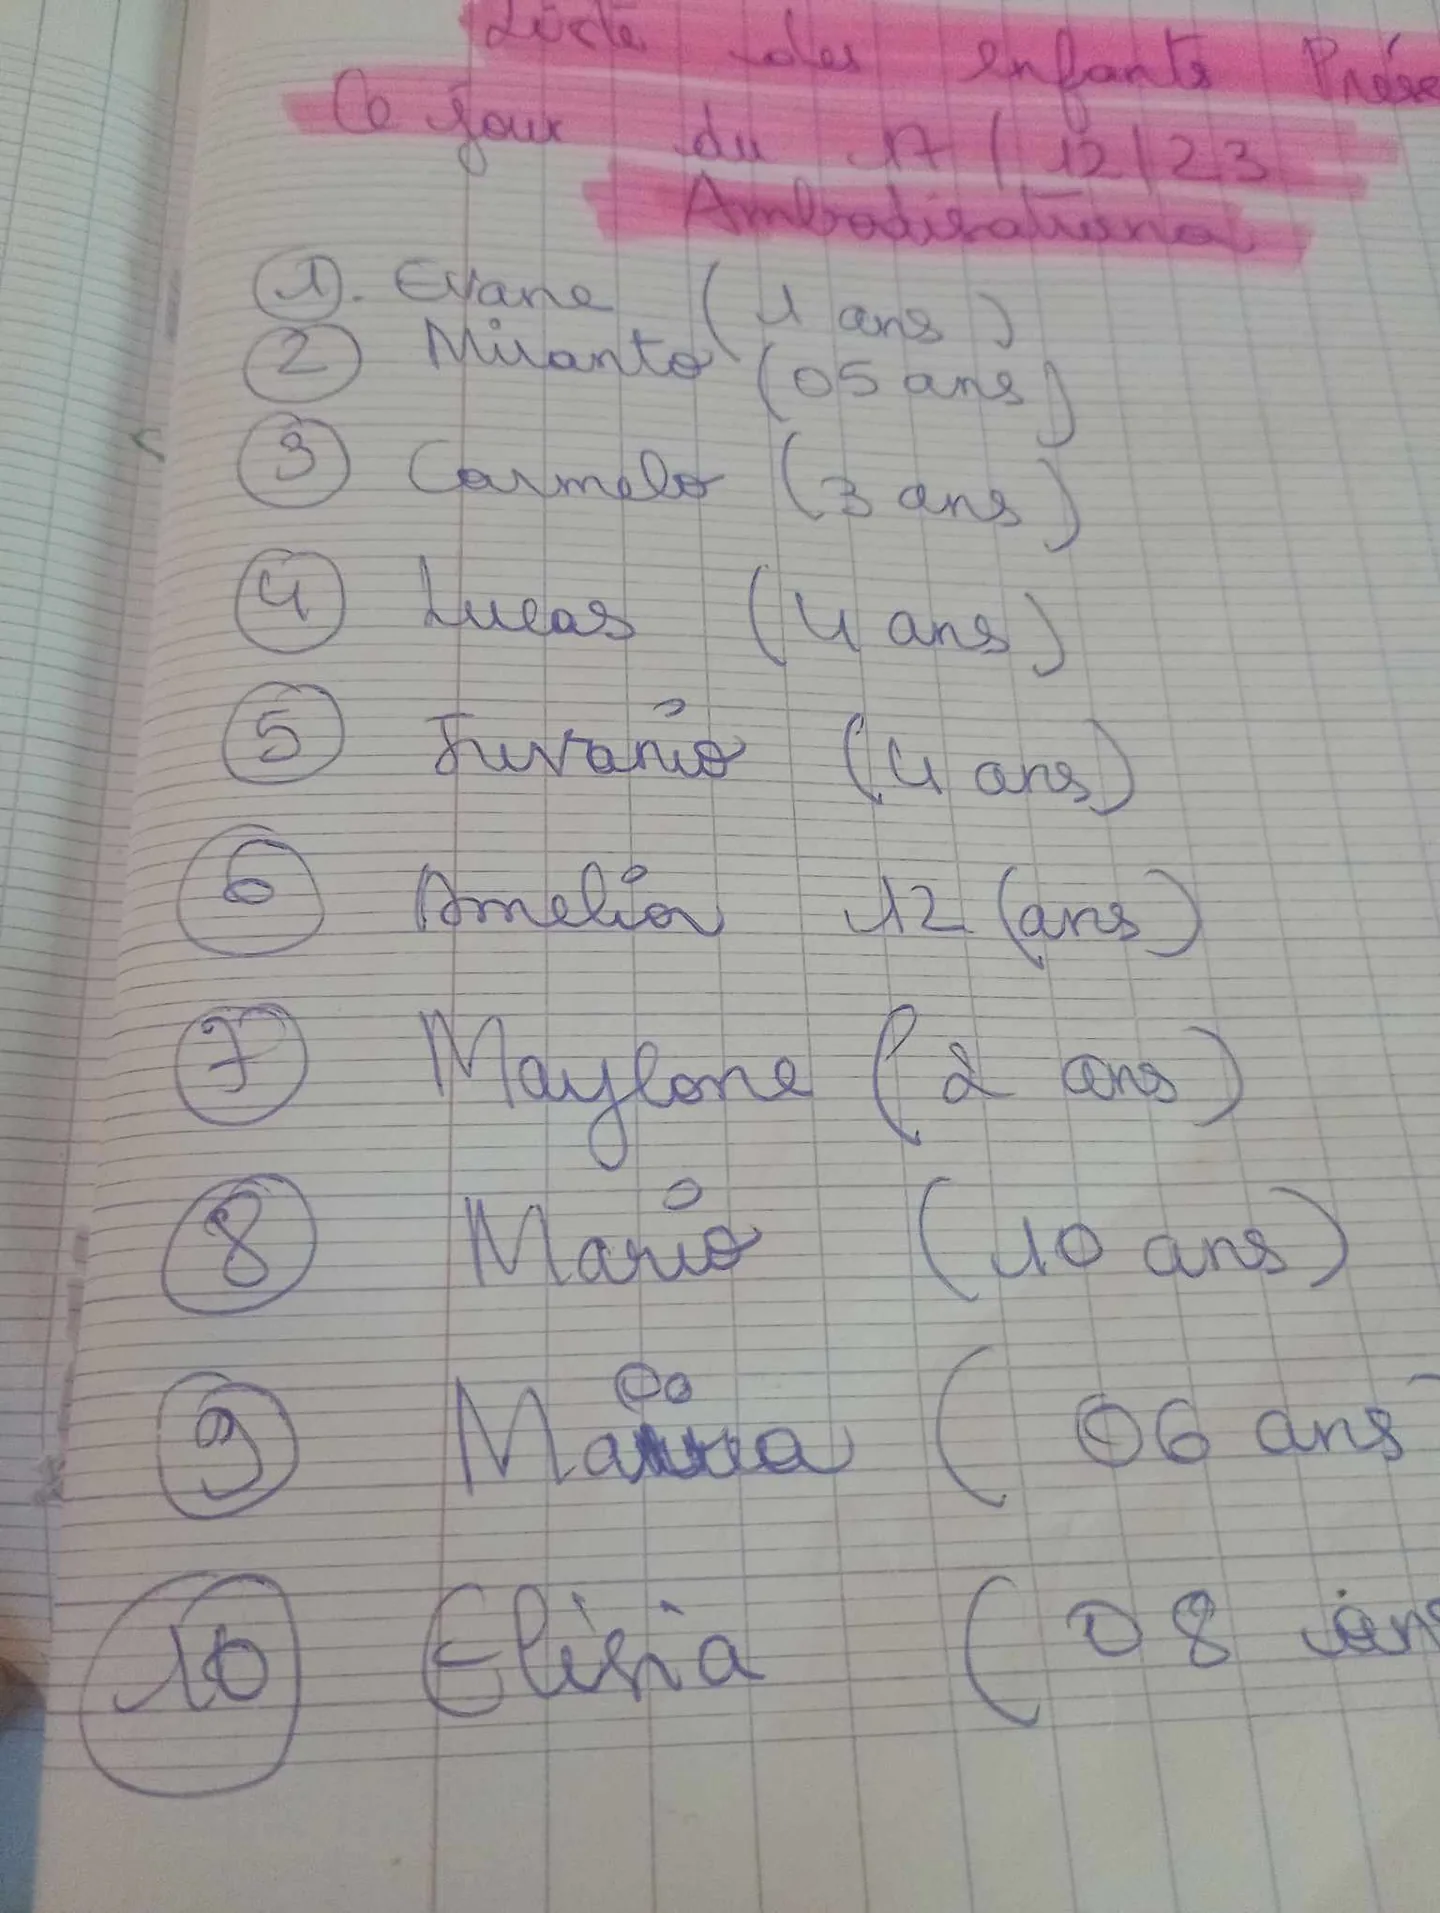 Liste des enfants Prése
Ce jour du 17/12/23
Ambodisatrana
1). Evane (4 ans)
2 Miranto (05 ans)
3 Carmelo (3 ans)
4 Lucas (4 ans)
5 Juvanio (4 ans)
6 Amelia 12 (ans)
7 Maylone (2 ans)
8 Mario (10 ans)
9 (06 ans
10 Elisia (08 ans